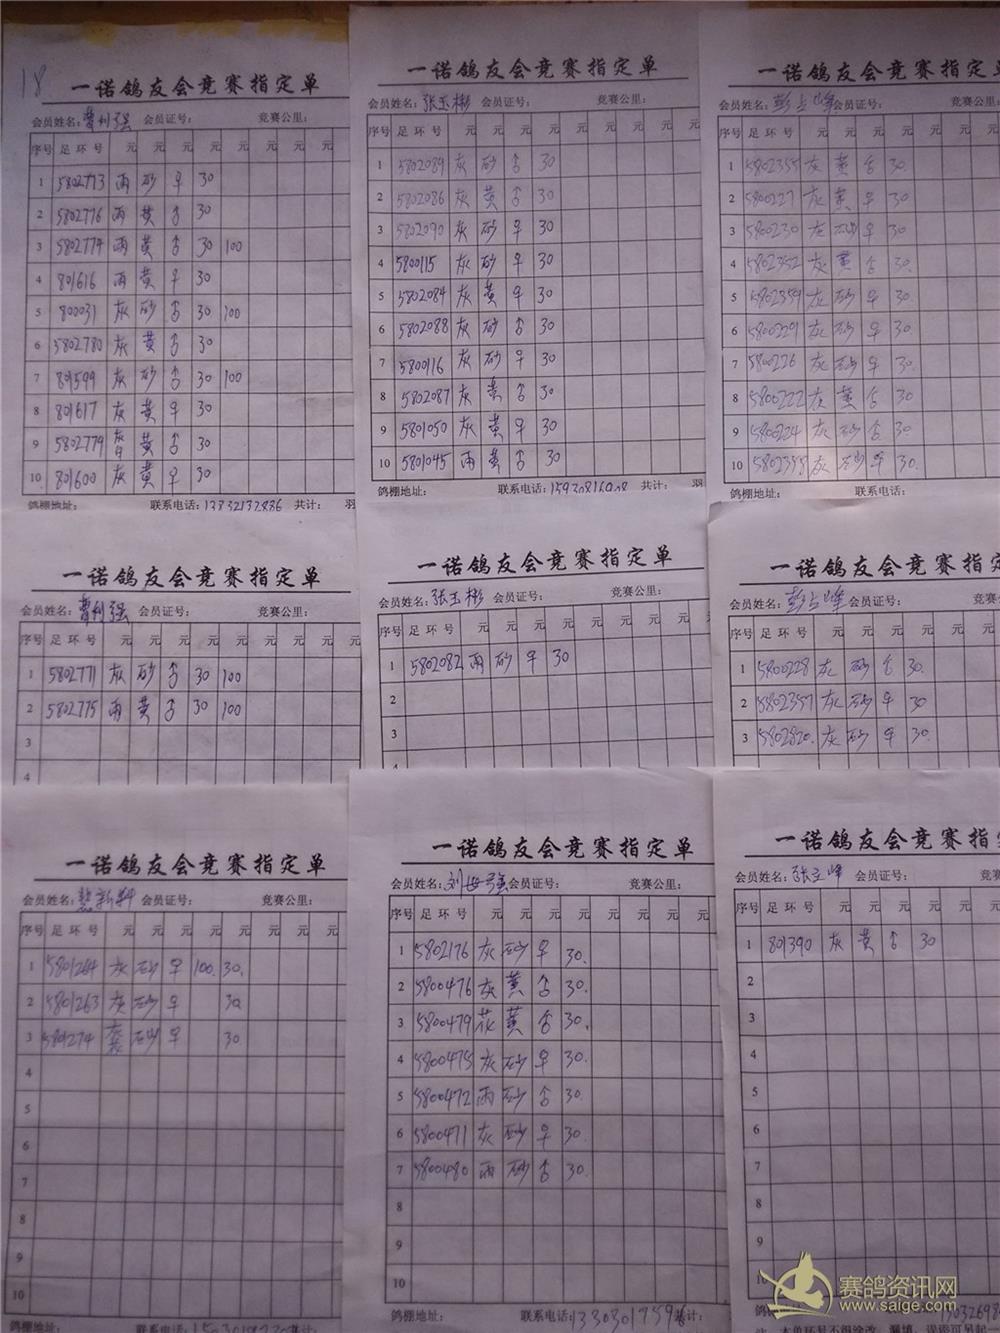 18
一诺鸽友会竞赛指定单
会员姓名：曹利强 会员证号： 竞赛公里：
序号 足环号 元 元 元 元 元 元 元 元
1 5802773 雨 砂 ♀ 30
2 5802776 雨 黄 ♂ 30
3 5802774 雨 黄 ♂ 30 100
4 801616 雨 黄 ♀ 30
5 800031 灰 砂 ♂ 30 100
6 5802780 灰 黄 ♂ 30
7 801599 灰 砂 ♂ 30 100
8 801617 灰 黄 ♀ 30
9 5802779 黄 ♂ 30
10 801600 灰 黄 ♀ 30
鸽棚地址： 联系电话：13832132836 共计： 羽
一诺鸽友会竞赛指定单
会员姓名：张玉彬 会员证号： 竞赛公里：
序号 足环号 元 元 元 元 元 元 元 元
1 5802089 灰 砂 ♂ 30
2 5802086 灰 黄 ♂ 30
3 5802090 灰 砂 ♀ 30
4 5800115 灰 砂 ♀ 30
5 5802084 灰 黄 ♀ 30
6 5802088 灰 砂 ♂ 30
7 5800116 灰 砂 ♀ 30
8 5802087 灰 黄 ♂ 30
9 5801050 灰 黄 ♀ 30
10 5801045 雨 黄 ♂ 30
鸽棚地址： 联系电话： 共计： 羽
一诺鸽友会竞赛指定
会员姓名：彭占峰 会员证号： 竞赛公
序号 足环号 元 元 元 元 元 元
1 5802355 灰 黄 ♂ 30.
2 5800227 灰 黄 ♀ 30
3 5800230 灰 砂 ♀ 30
4 5802352 灰 黄 ♂ 30.
5 5802359 灰 砂 ♀ 30.
6 5800229 灰 砂 ♀ 30.
7 5800226 灰 砂 ♀ 30.
8 5800222 灰 黄 ♂ 30
9 5800224 灰 砂 ♂ 30
10 5802358 灰 砂 ♀ 30.
鸽棚地址： 联系电话：
一诺鸽友会竞赛指定单
会员姓名：曹利强 会员证号： 竞赛公里：
序号 足环号 元 元 元 元 元 元 元 元
1 5802771 灰 砂 ♂ 30 100
2 5802775 雨 黄 ♂ 30 100
3
4
一诺鸽友会竞赛指定单
会员姓名：张玉彬 会员证号： 竞赛公里：
序号 足环号 元 元 元 元 元 元 元 元
1 5802082 雨 砂 ♀ 30
2
3
4
一诺鸽友会竞赛指定
会员姓名：彭占峰 会员证号： 竞赛公
序号 足环号 元 元 元 元 元 元
1 5800228 灰 砂 ♂ 30.
2 5802357 灰 砂 ♀ 30
3 5802820. 灰 砂 ♀ 30.
一诺鸽友会竞赛指定单
会员姓名： 会员证号： 竞赛公里：
序号 足环号 元 元 元 元 元 元 元 元
1 5801264 灰 砂 ♀ 100. 30.
2 5801263 灰 砂 ♀ 30.
3 砂 ♀ 30
4
5
6
7
8
9
10
鸽棚地址： 联系电话： 共计：
一诺鸽友会竞赛指定单
会员姓名：刘 强 会员证号： 竞赛公里：
序号 足环号 元 元 元 元 元 元 元 元
1 5802176 灰 砂 ♀ 30.
2 5800476 灰 黄 ♂ 30.
3 5800479 花 黄 ♂ 30.
4 5800475 灰 砂 ♀ 30.
5 5800472 雨 砂 ♂ 30.
6 5800471 灰 砂 ♀ 30.
7 5800480 雨 砂 ♂ 30.
8
9
10
鸽棚地址： 联系电话：1330301759 共计：
一诺鸽友会竞赛指
会员姓名：张立峰 会员证号： 竞赛
序号 足环号 元 元 元 元 元 元
1 801390 灰 黄 ♂ 30
2
3
4
5
6
7
8
9
10
鸽棚地址：
赛鸽资讯网
www.saige.com